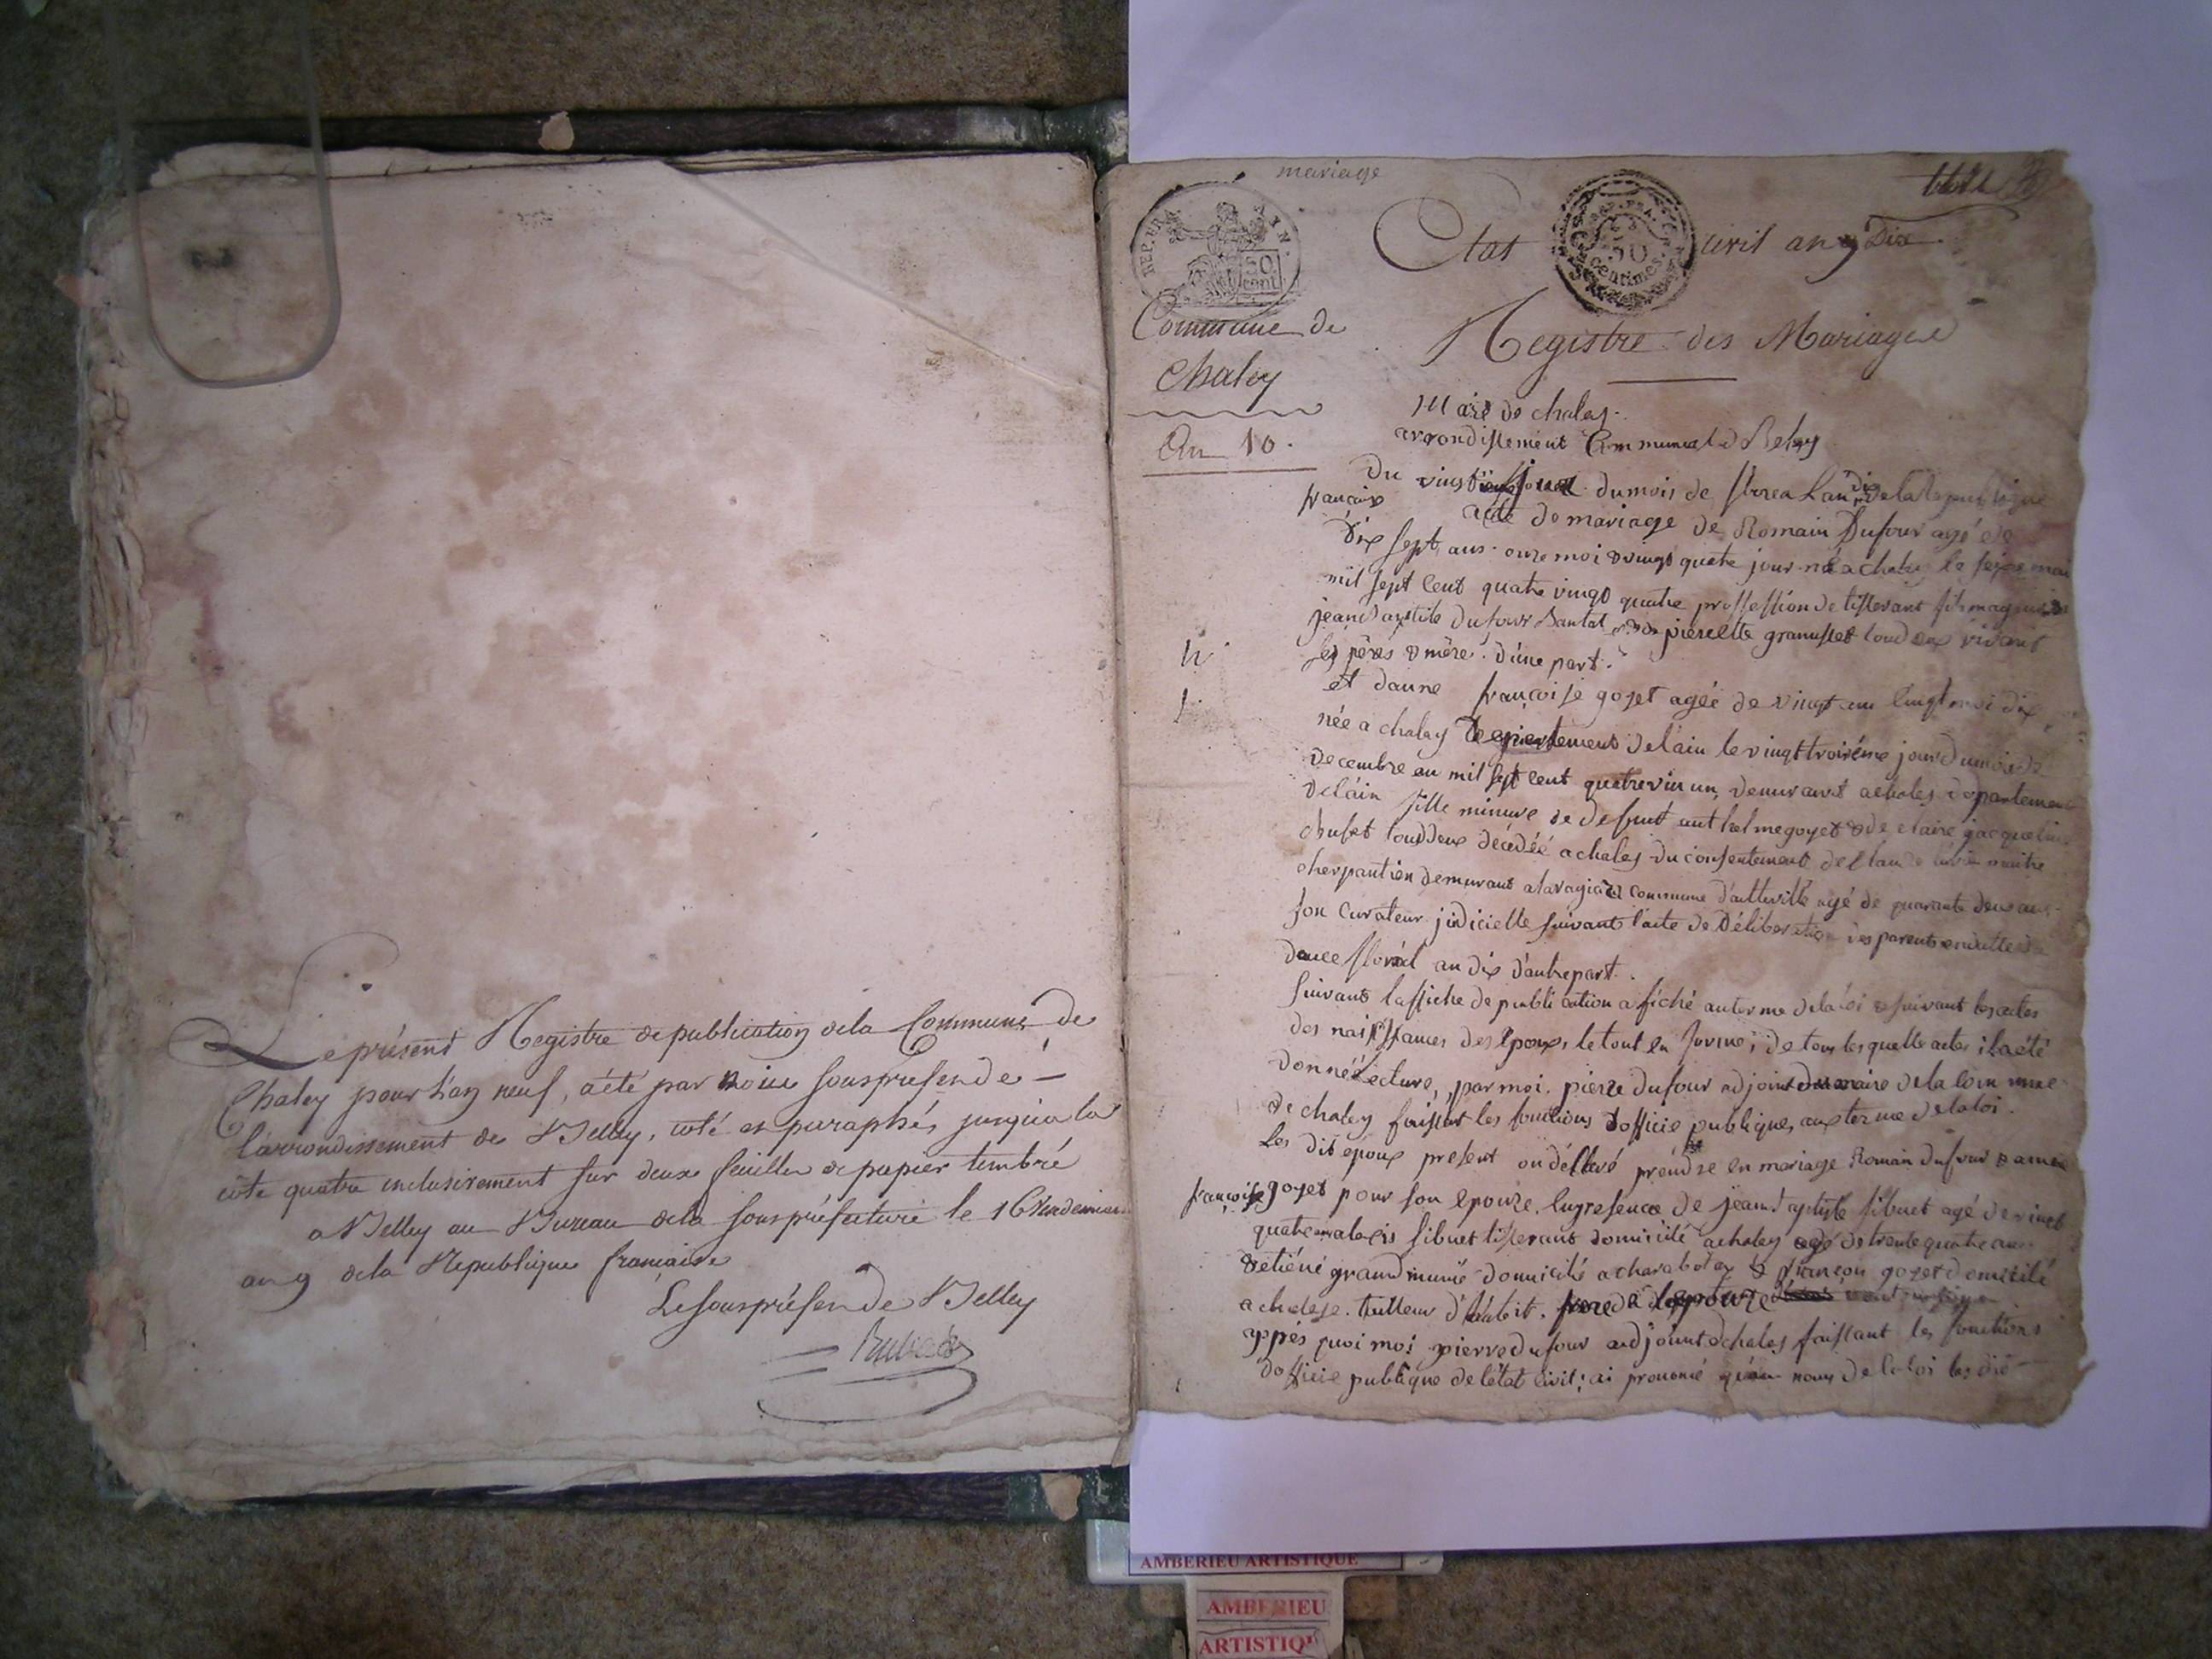 Le présent Registre de publication de la Commune de
Chaley pour l'an neuf, a été par nous sousprefen de
l'arrondissement de Belley, coté et paraphé, jusqu'a la
cote quatre inclusivement sur deux feuilles de papier timbré
a Belley au Bureau de la sousprefecture le 16 Vendemiaire
an 9 de la Republique francaise
Le sousprefen de Belley
mariage
REP. FRA.
50
cent.
REP. FRA.
50
centimes
Etat civil an 9 Dix
Commune de
Chaley
An 10.
Registre des Mariages
Maire de chaley
arrondissement Communal de Beley
Du vingt jour du mois de floreal an dix de la republique
francaise acte de mariage de Romain Dufour agé de
dix sept ans onze moi & vingt quatre jour né a chaley le seize mai
mil sept cent quatre vingt quatre proffession de tisserant fils
jean baptiste dufour pierrette granusset toud eux vivant
ses pères & mère d'une part.
et danne françoise goyet agée de vingt moi dix
née a chaley departement delain le vingt troiséme jour du mois de
decembre en mil sept cent quatrevin un, demurant a chaley departement
delain fille minure de defunt anthelme goyet & de claire jacqueline
chufet toud deux décédéé a chaley du consentement de maitre
cherpantien demurant commune d'autteville agé de quarante deux ans
son curateur judicielle suivant l'acte de Déliberation des parents en datte du
douce floréal an dix d'autre part.
suivant laffiche de publication afiché au terme de la loi & suivant les actes
des naissances des epoux, le tout en forme; de tous les quelle actes il a été
donnéé Lecture, par moi. pierre dufour adjoint du maire de la commune
de chaley faissant les fonctions d'officie publique, aux terme de la loi.
Les dit epoux present on déllevé prendre en mariage Romain dufour danne
françoise goyet pour son epouze. en presence de jean baptiste sibuet agé de vinct
quatre an alexis sibuet tisserant domicilié a chaley agé de trente quatre an
& etiéné grand domicilié a charabotey & françois goyet domicilié
a chaley. tailleur d'habit. frere de lepouze
appés quoi moi pierre dufour adjoint de chaley faissant les fonctions
d'officie publique de l'état civil; ai prononcé qu'au nom de la loi les dit
AMBERIEU ARTISTIQUE
AMBERIEU
ARTISTIQU